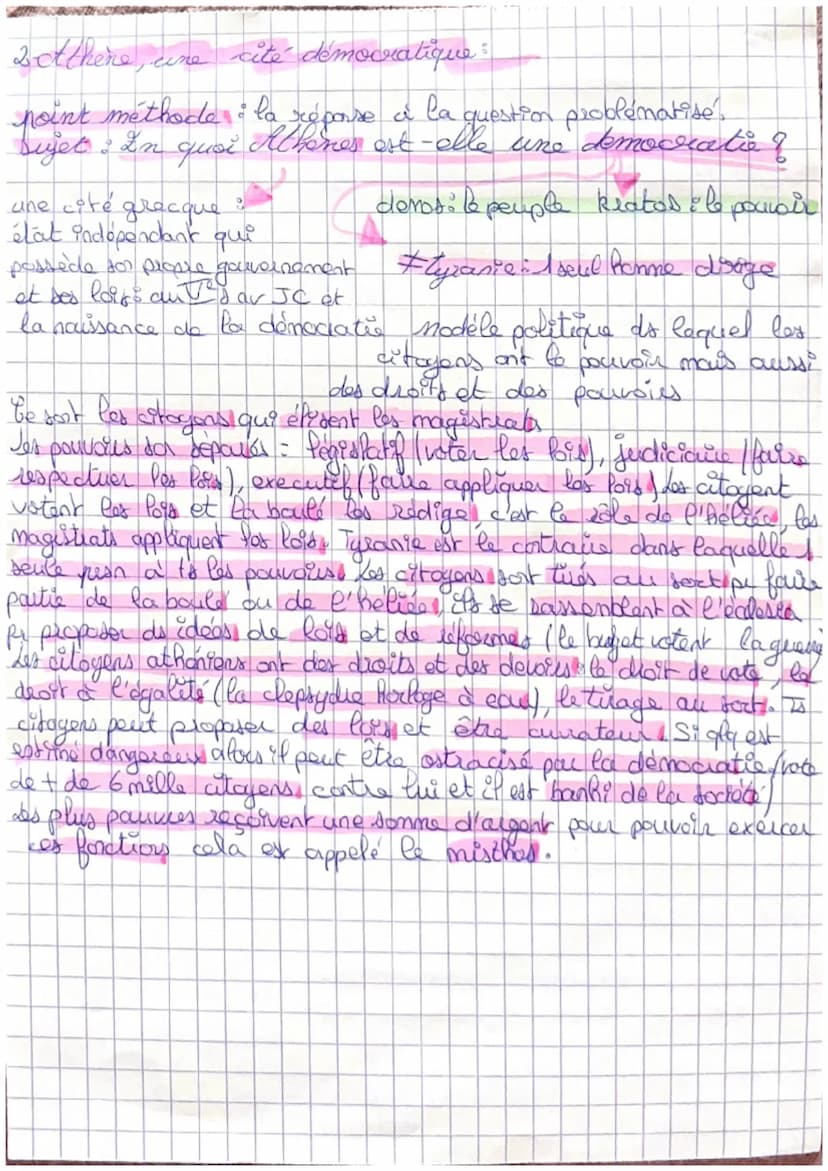 2. Athène, une cité démocratique :
point méthode : la réponse à la question problématisé.
Sujet : En quoi Athènes est-elle une democratie ?
une cité grecque :
demos : le peuple kratos : le pouvoir
état indépendant qui
possède son propre gouvernement
et ses lois : au V°s av JC et
la naissance de la démocratie
≠ tyranie : 1 seul homme dirige
modèle politique ds lequel les
citoyens ont le pouvoir mais aussi
des droits et des pouvoirs
Ce sont les citoyens qui élisent les magistrats
Les pouvoirs son séparés = législatif (voter les lois), judiciaire (faire
respectuer les lois), executif (faire appliquer les lois) Les citoyent
votent les lois et la boulé les rédige, c'est le rôle de l'héliée, les
magistrats appliquent les lois. Tyranie est le contraire dans laquelle 1
seule à ts les pouvoirs. Les citoyens sont tirés au sort pr faire
partie de la boulé ou de l'héliée, ils se rassemblent à l'éclesia
pr proposer ds idées de lois et de réformes (le bujet votent la guerre
Les citoyens athéniens ont des droits et des devoirs : le droit de vote, le
droit à l'égalité (la clepsydre horloge à eau), le tirage au sort. Ts
citoyens peut proposer des lois et être Si qlq est
estimé dangereux alors il peut être ostracisé par la démocratie (vote
de + de 6 mille citoyens contre lui et il est banni de la société)
Les plus pauvres reçoivent une somme d'argent pour pouvoir exercer
ces fonctions cela est appelé le misthos.